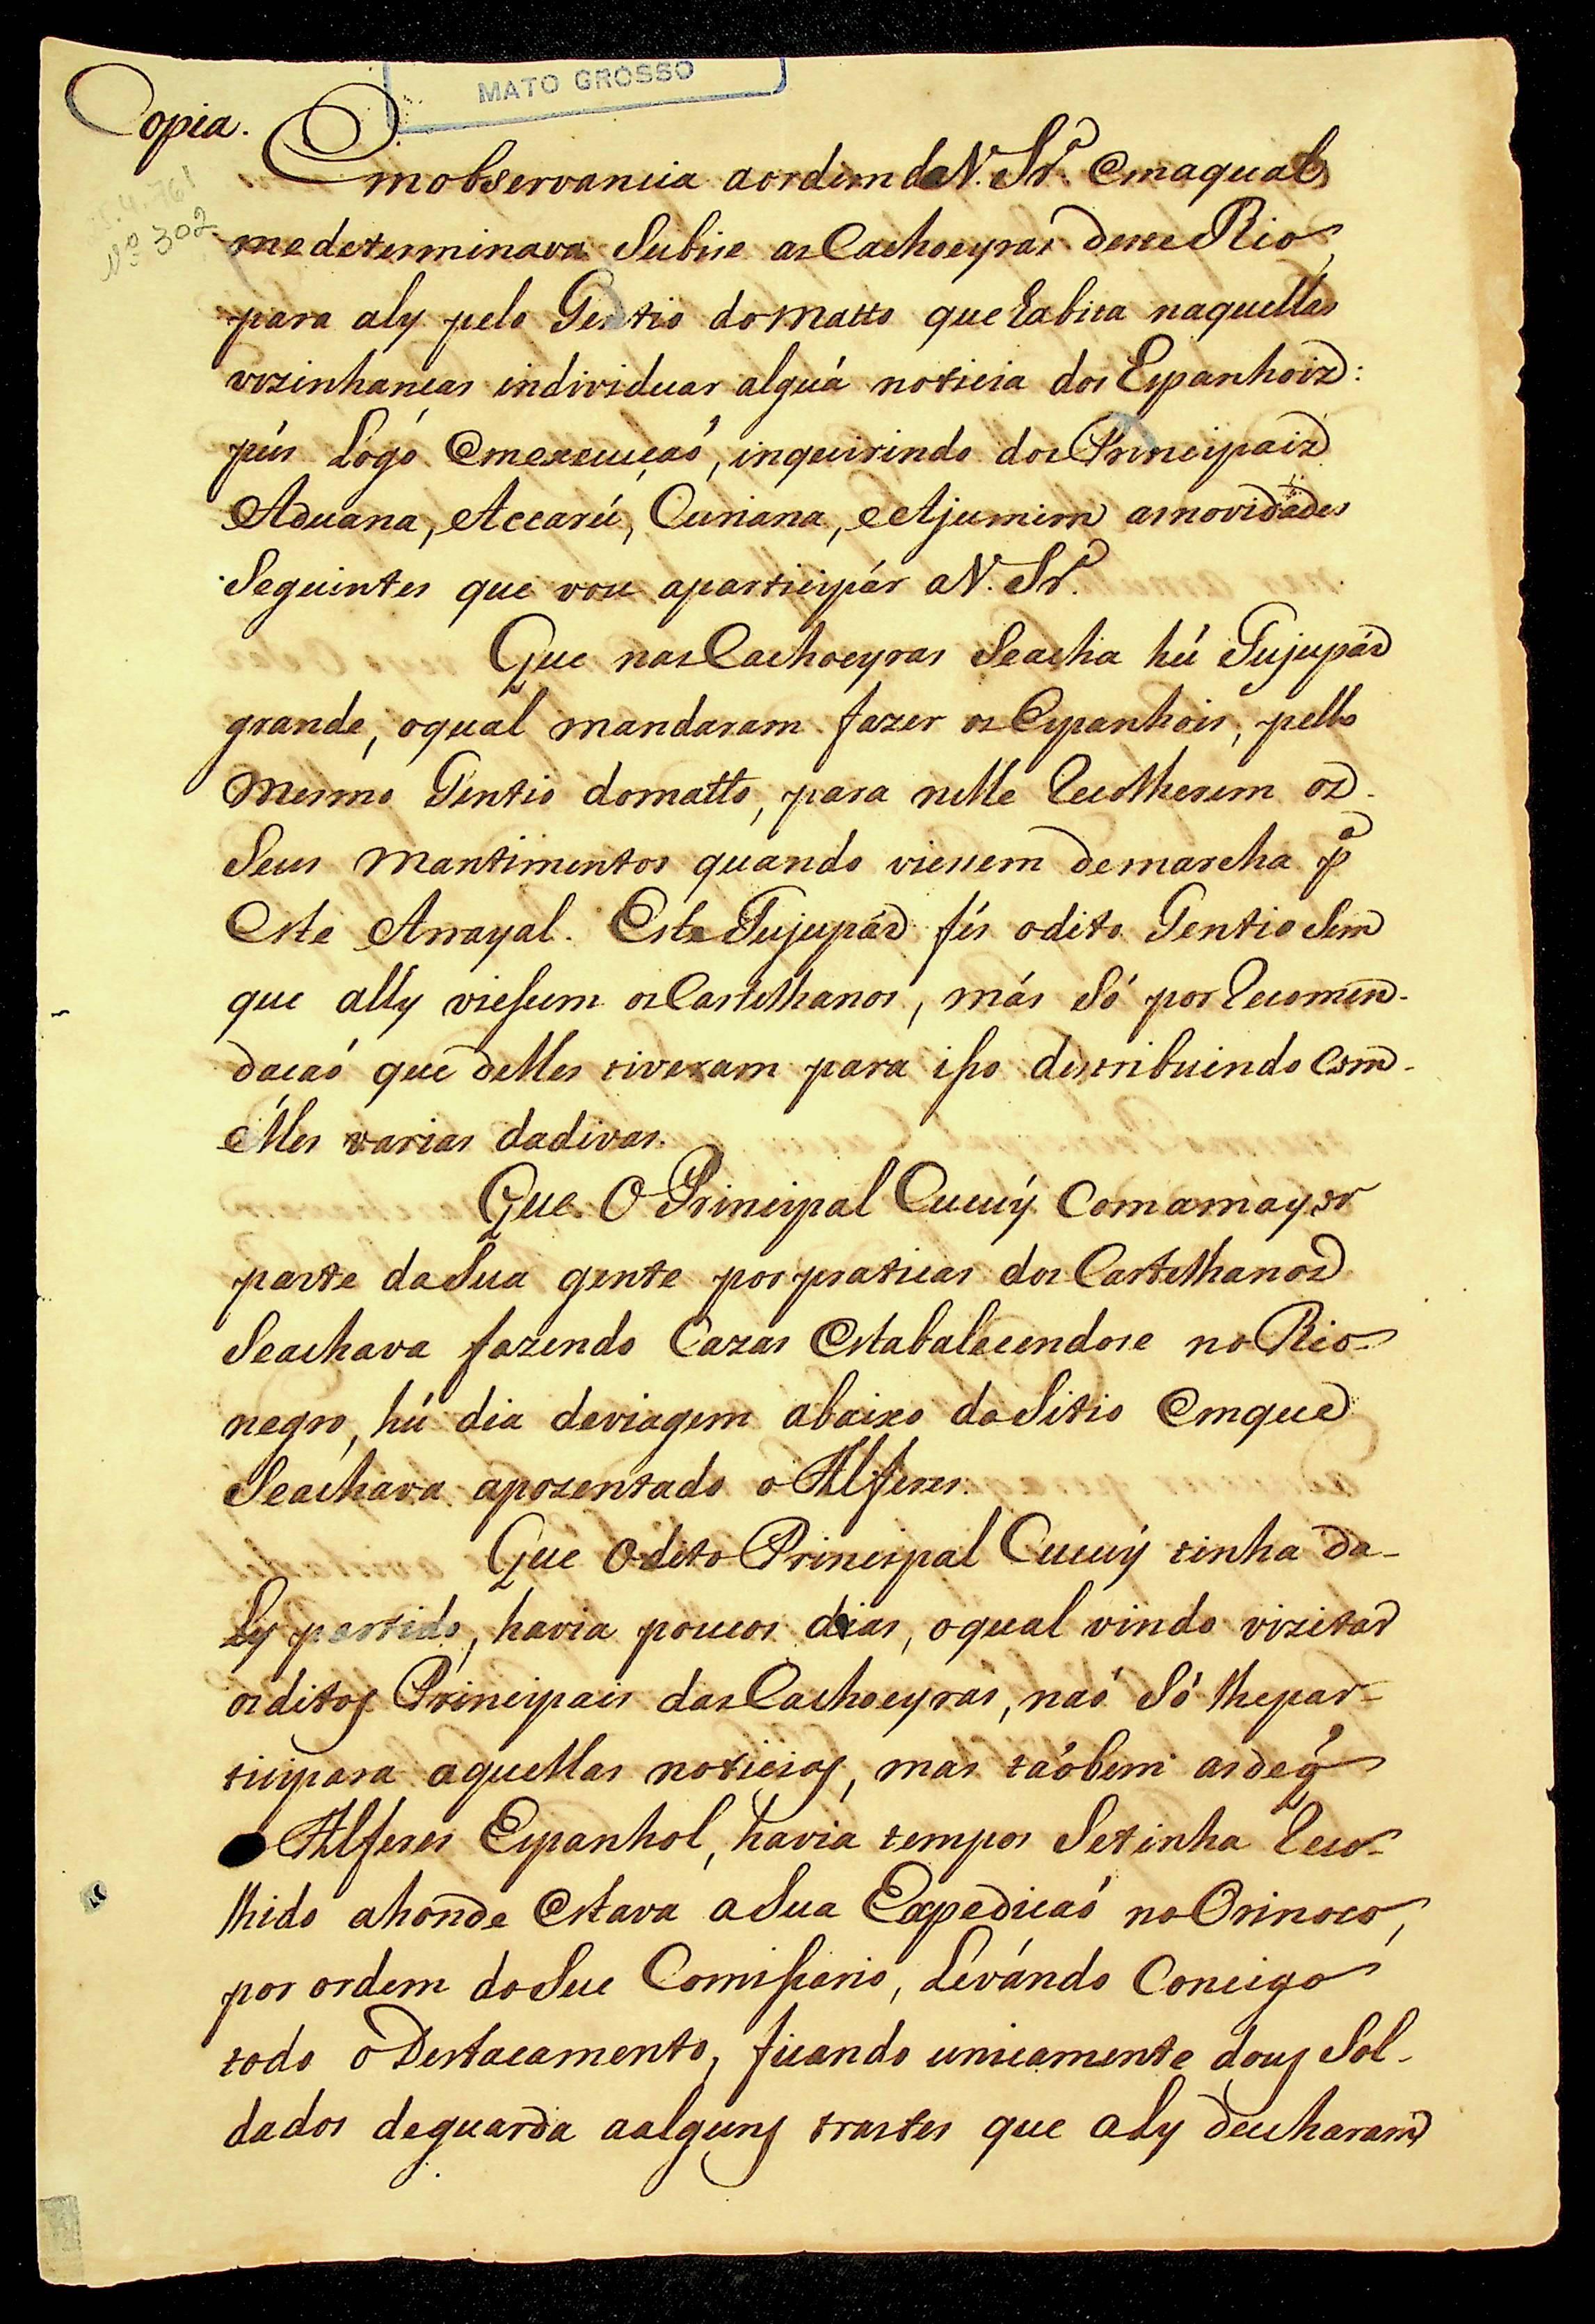 MATO GROSSO
Copia.
Nº 302
Em observancia a ordem de V. Sª. em a qual
me determinava Subise as Cachoeyras deste Rio,
para aly pelo Gentio do Matto que habita naquellas
vizinhancas individuar alguá noticia dos Espanhoiz:
pús Logó em execuçaó, inquirindo dos Principaiz
Aduana, Accarú, Curiana, e Ajumim as novidades
Seguintes que vou aparticipár a V. Sª.
Que nas Cachoeyras Se acha hú Tujupár
grande, o qual mandaram fazer os Espanhois, pello
mesmo Gentio do matto, para nelle recolherem os
Seus mantimentos quando viessem de marcha pª
Este Arrayal. Este Tujupár fés o dito Gentio Sem
que ally viessem os Castelhanos, más Só por recomen-
dacaó que delles tiveram para isso destribuindo Com
elles varias dadivas.
Que O Principal Cucuý Com a mayor
parte da Sua gente por praticas dos Castelhanos
Se achava fazendo Cazas Estabalecendose no Rio
negro, hú dia de viagem abaixo do Sitio Em que
Se achava apozentado o Alferes.
Que O dito Principal Cucuý tinha da-
Ly partido, havia poucos dias, o qual vindo vizitar
os ditos Principais das Cachoeyras, naó Só lhe par-
ticipara aquellas noticias, mas taóbem as de q̃
Alferes Espanhol, havia tempos Se tinha reco-
lhido ahonde Estava a Sua Expedicaó no Orinoco,
por ordem do Seu Comissario, Levándo Concigo
todo o Destacamento, ficando unicamente dous Sol-
dados de guarda a alguns trastes que aly deicharam